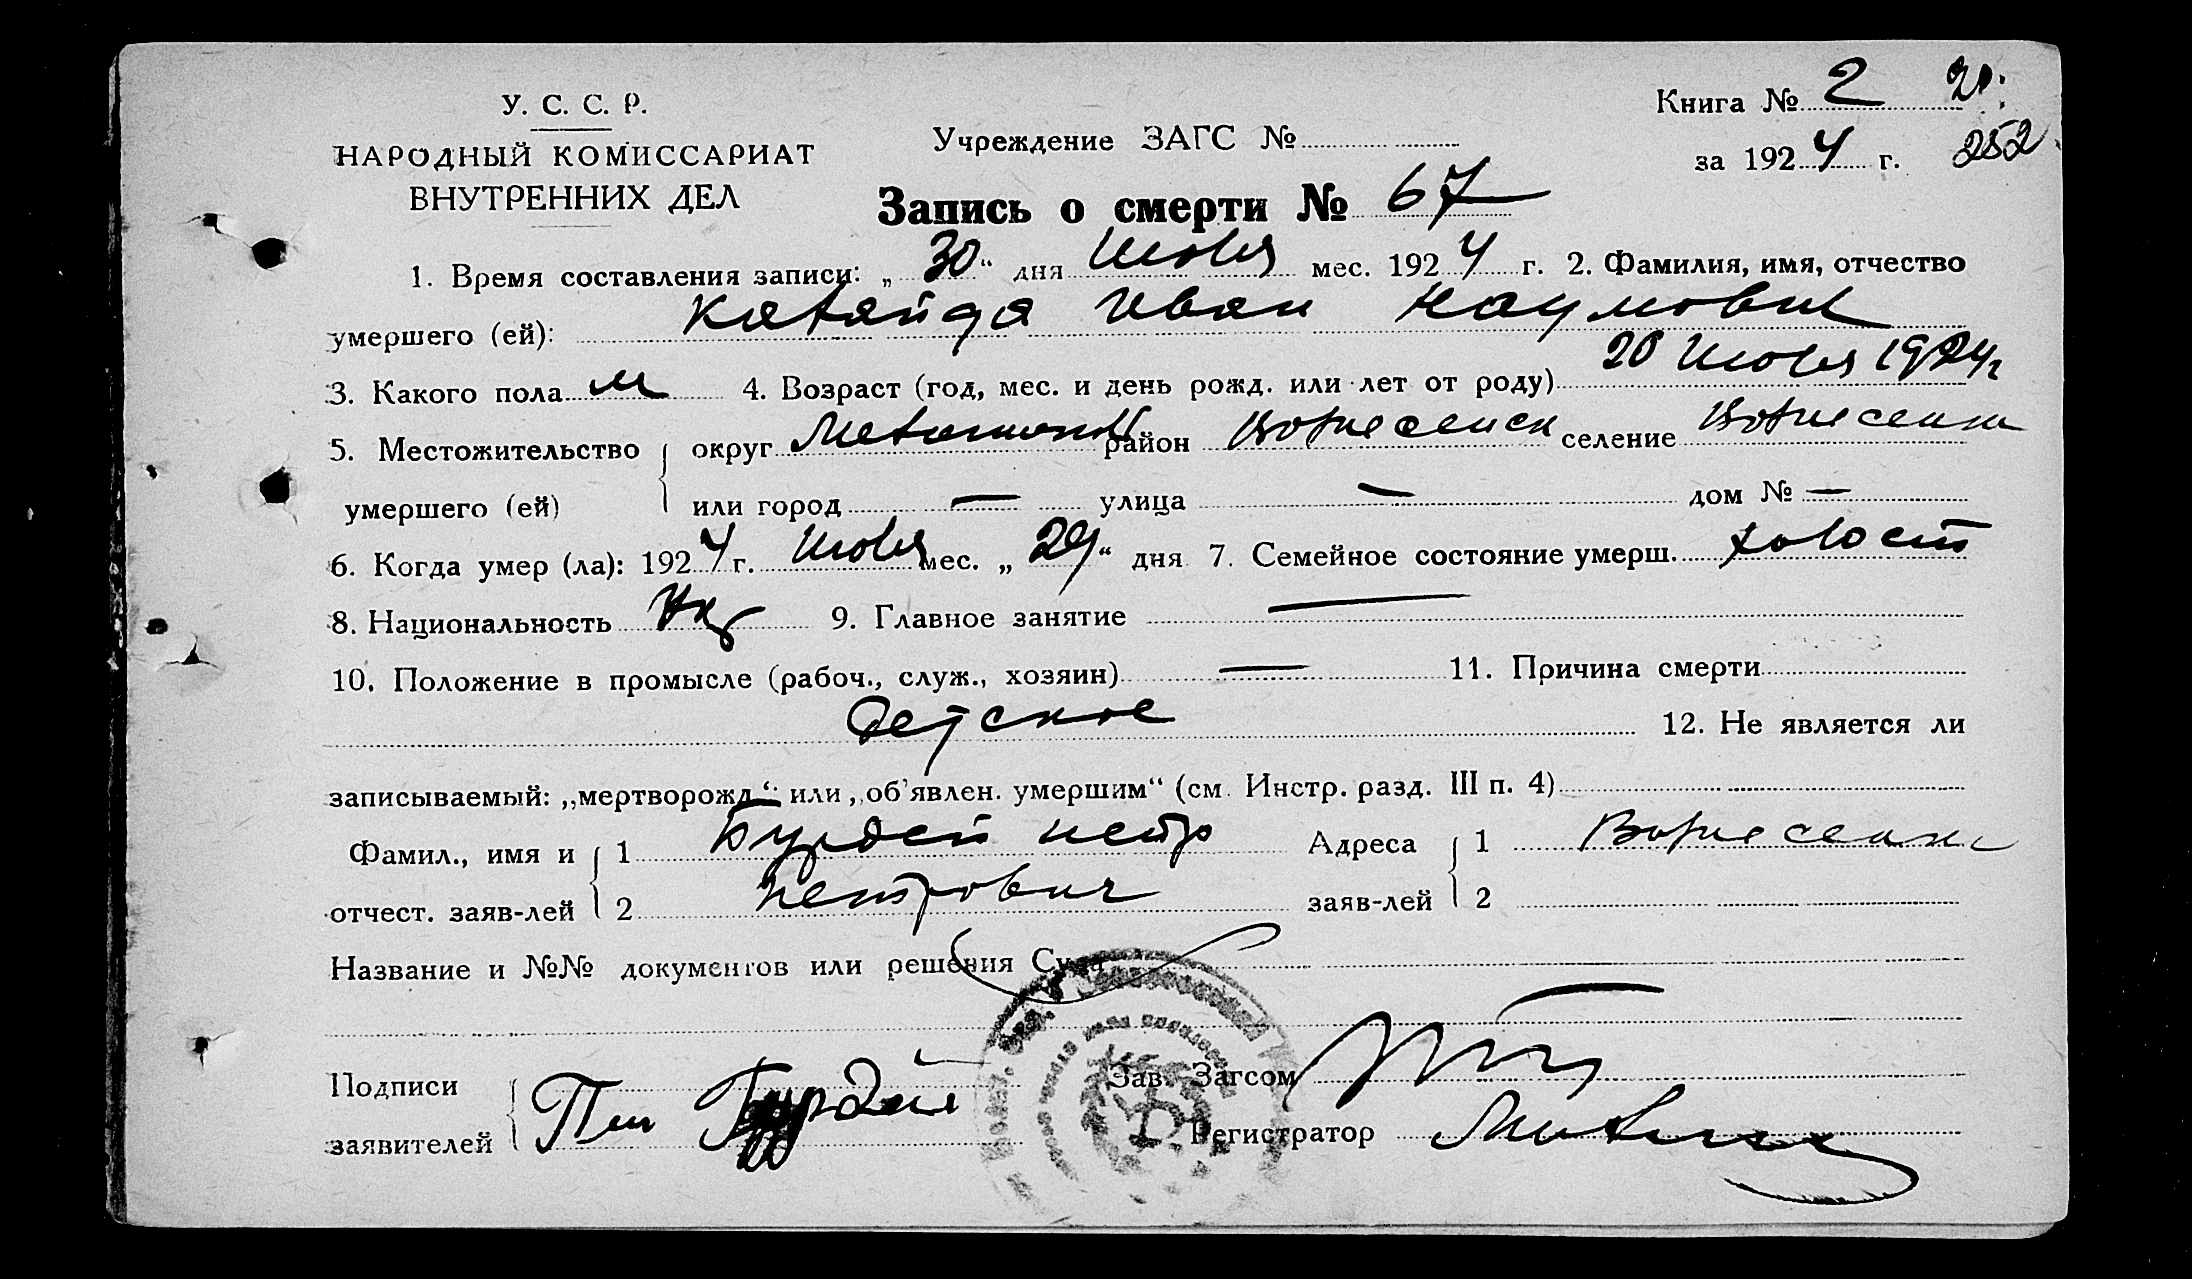 У. С. С. Р.
НАРОДНЫЙ КОМИССАРИАТ
ВНУТРЕННИХ ДЕЛ
Учреждение ЗАГС №
Книга № 2
за 1924 г. 252
Запись о смерти № 67
1. Время составления записи: „30“ дня Июля мес. 1924 г. 2. Фамилия, имя, отчество
умершего (ей): Иван Наумович
3. Какого пола м 4. Возраст (год, мес. и день рожд. или лет от роду) 20 Июля 1924 г
5. Местожительство округ район Вознесенск селение Вознесенка
умершего (ей) или город — улица — дом № —
6. Когда умер (ла): 1924 г. Июля мес. „29“ дня 7. Семейное состояние умерш. холост
8. Национальность Укр 9. Главное занятие —
10. Положение в промысле (рабоч., служ., хозяин) — 11. Причина смерти
Детское 12. Не является ли
записываемый: „мертворожд“ или „об'явлен. умершим“ (см. Инстр. разд. III п. 4)
Фамил., имя и 1 Бурдей Петр Адреса 1 Вознесенка
отчест. заяв-лей 2 Петрович заяв-лей 2
Название и №№ документов или решения Суда
Подписи Зав. Загсом
заявителей Регистратор